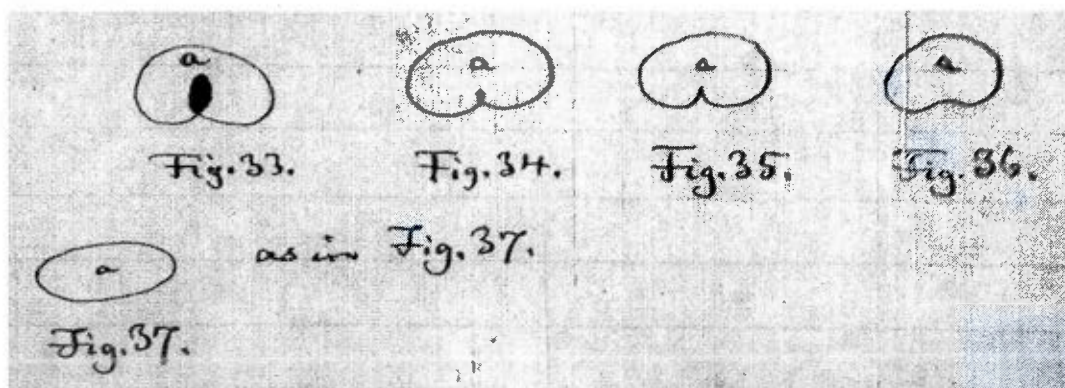 a a a a
Fig. 33. Fig. 34. Fig. 35. Fig. 36.
as in Fig. 37.
a
Fig. 37.